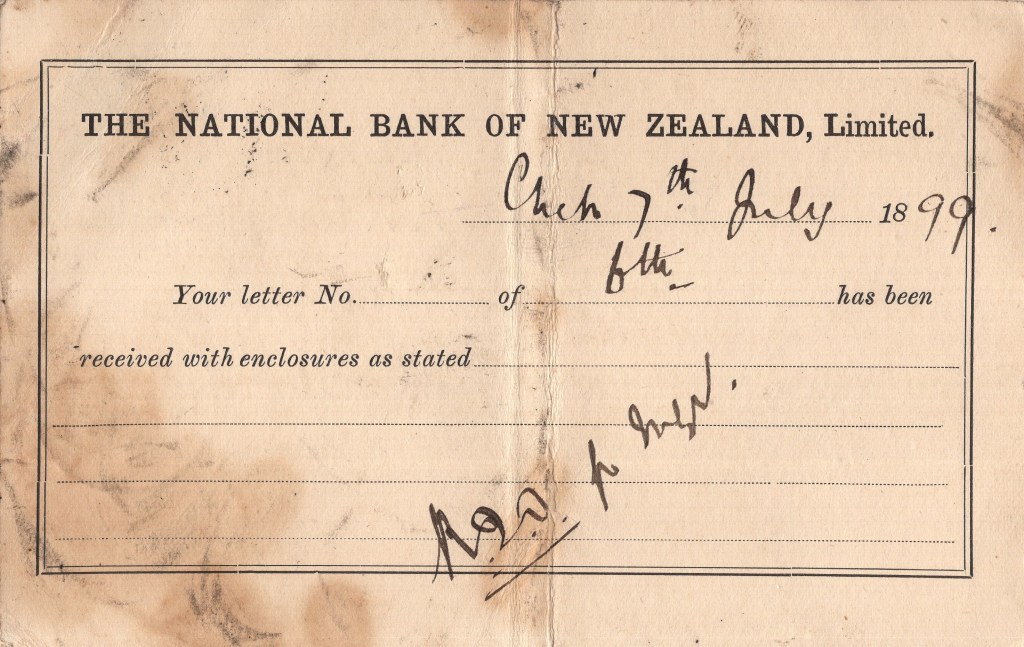 THE NATIONAL BANK OF NEW ZEALAND, Limited.
Chch 7th July 1899.
6th
Your letter No. of has been
received with enclosures as stated